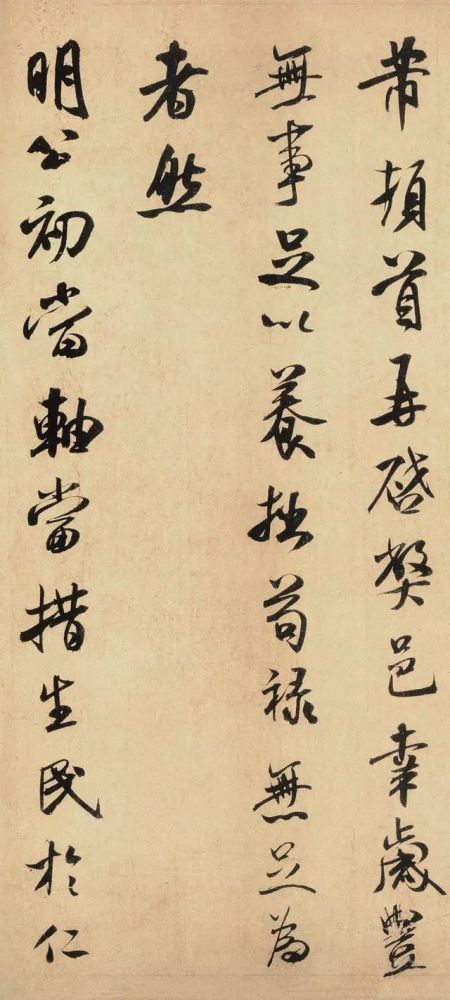 芾頓首再啓弊邑幸歲豐
無事足以養拙苟禄無足為
者然
明公初當軸當措生民於仁